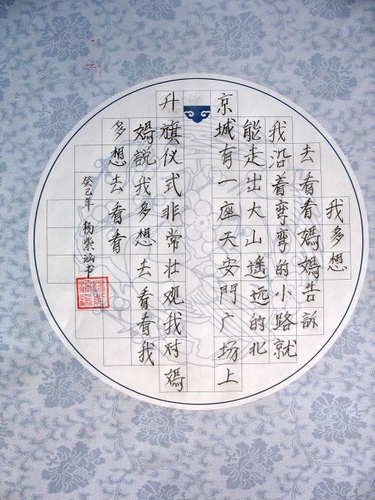 我多想
去看看媽媽告訴
我沿着彎彎的小路就
能走出大山遙远的北
京城有一座天安門广场上
升旗仪式非常壮观我对媽
媽説我多想去看看我
多想去看看
癸巳年 杨紫涵书